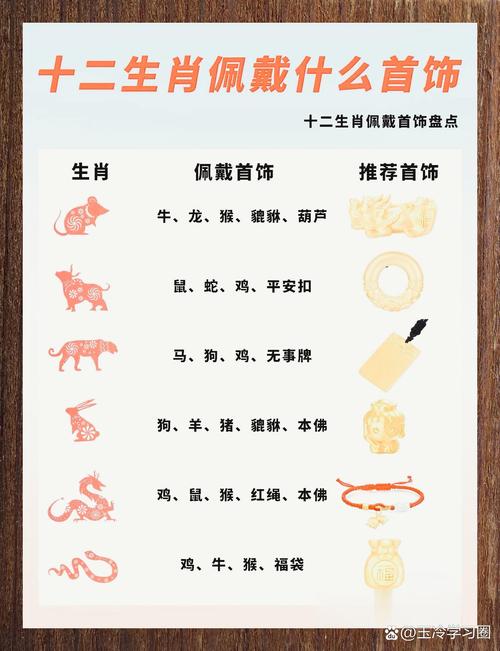 十二生肖佩戴什么首饰
十二生肖佩戴首饰盘点
生肖 佩戴首饰 推荐首饰
牛、龙、猴、貔貅、葫芦
鼠、蛇、鸡、平安扣
马、狗、鸡、无事牌
狗、羊、猪、貔貅、本佛
鸡、鼠、猴、红绳、本佛
鸡、牛、猴、福袋
福
@玉冷学习圈